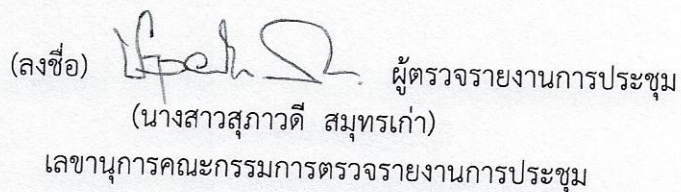 (ลงชื่อ) ผู้ตรวจรายงานการประชุม
(นางสาวสุภาวดี สมุทรเก่า)
เลขานุการคณะกรรมการตรวจรายงานการประชุม